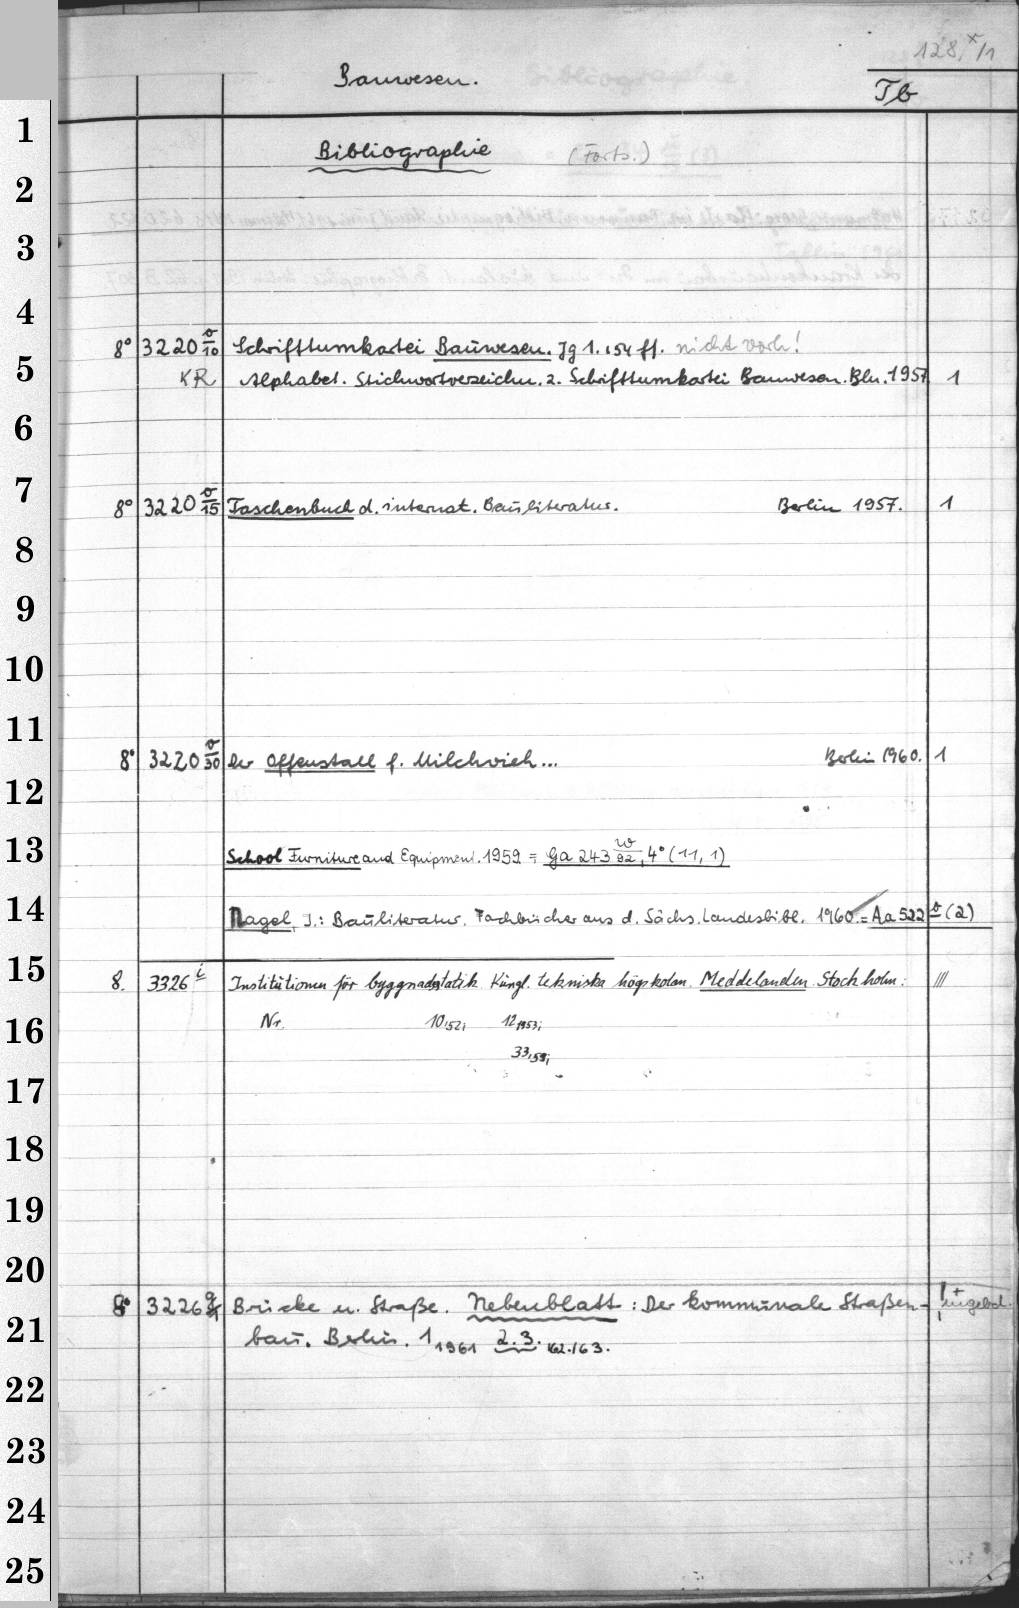 128,x/1
Bauwesen.
Tb
1
Bibliographie (Forts.)
2
3
4
8° 3220 v/10 Schrifttumkartei Bauwesen. Jg 1.154 ff. nicht vorh!
5
KR Alphabet. Stichwortverzeichn. z. Schrifttumkartei Bauwesen. Bln. 1957 1
6
7
8° 3220 v/15 Taschenbuch d. internat. Bauliteratur. Berlin 1957. 1
8
9
10
11
8° 3220 v/30 Der Offenstall f. Milchvieh... Berlin 1960. 1
12
13
School Furniture and Equipment. 1959 = Ga 243 w/92, 4° (11, 1)
14
Nagel, J.: Bauliteratur. Fachbücher aus d. Sächs. Landesbibl. 1960. = Aa 522 v (2)
15
8. 3326 i Institutionen för byggnadsstatik Kungl. tekniska högskolan. Meddelanden. Stockholm: III
16
Nr. 10,52; 12,1953;
33,59;
17
18
19
20
8° 3226 Brücke u. Straße. Nebenblatt: Der kommunale Straßen-
21
bau. Berlin. 1 1961 2.3. 62./63.
22
23
24
25